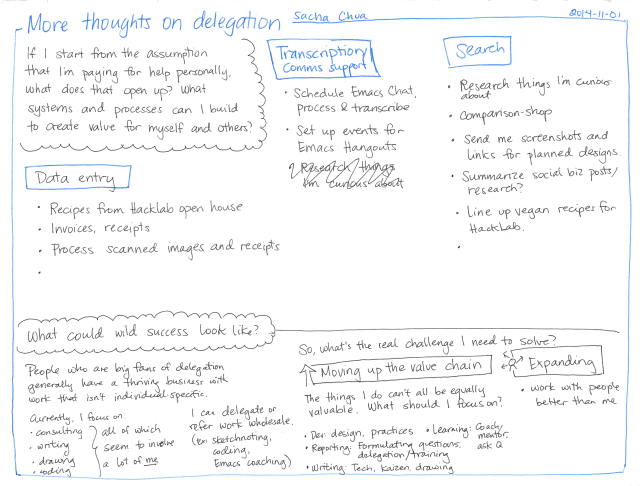 More thoughts on delegation
Sacha Chua
2014-11-01
If I start from the assumption
that I'm paying for help personally,
what does that open up? What
systems and processes can I build
to create value for myself and others?
Transcription/
Comms support
• Schedule Emacs Chat,
process & transcribe
• Set up events for
Emacs Hangouts
• Research things
I'm curious about
Search
• Research things I'm curious
about
• Comparison-shop
• Send me screenshots and
links for planned designs.
• Summarize social biz posts/
research?
• Line up vegan recipes for
HackLab.
•
Data entry
• Recipes from Hacklab open house
• Invoices, receipts
• Process scanned images and receipts
•
What could wild success look like?
People who are big fans of delegation
generally have a thriving business with
work that isn't individual-specific.
Currently, I focus on
• consulting
• writing
• drawing
• coding
all of which
seem to involve
a lot of me
I can delegate or
refer work wholesale.
(Ex: sketchnoting,
coding,
Emacs coaching)
So, what's the real challenge I need to solve?
Moving up the value chain
The things I do can't all be equally
valuable. What should I focus on?
• Dev: design, practices
• Learning: Coach/
mentor,
ask Q
• Reporting: Formulating questions,
delegation/training
• Writing: Tech, Kaizen, drawing
Expanding
• work with people
better than me